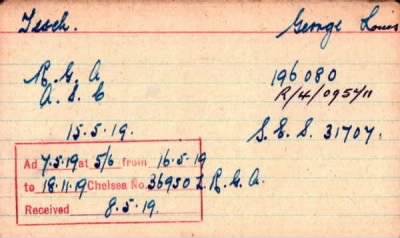 Tesch. George Louis
R.G.A. 196080
A.S.C R/4/095711
15.5.19. S.E.S. 31707.
Ad 7.5.19 at 5/6 from 16.5.19
to 18.11.19 Chelsea No. 36950 L R.G.A.
Received 8.5.19.